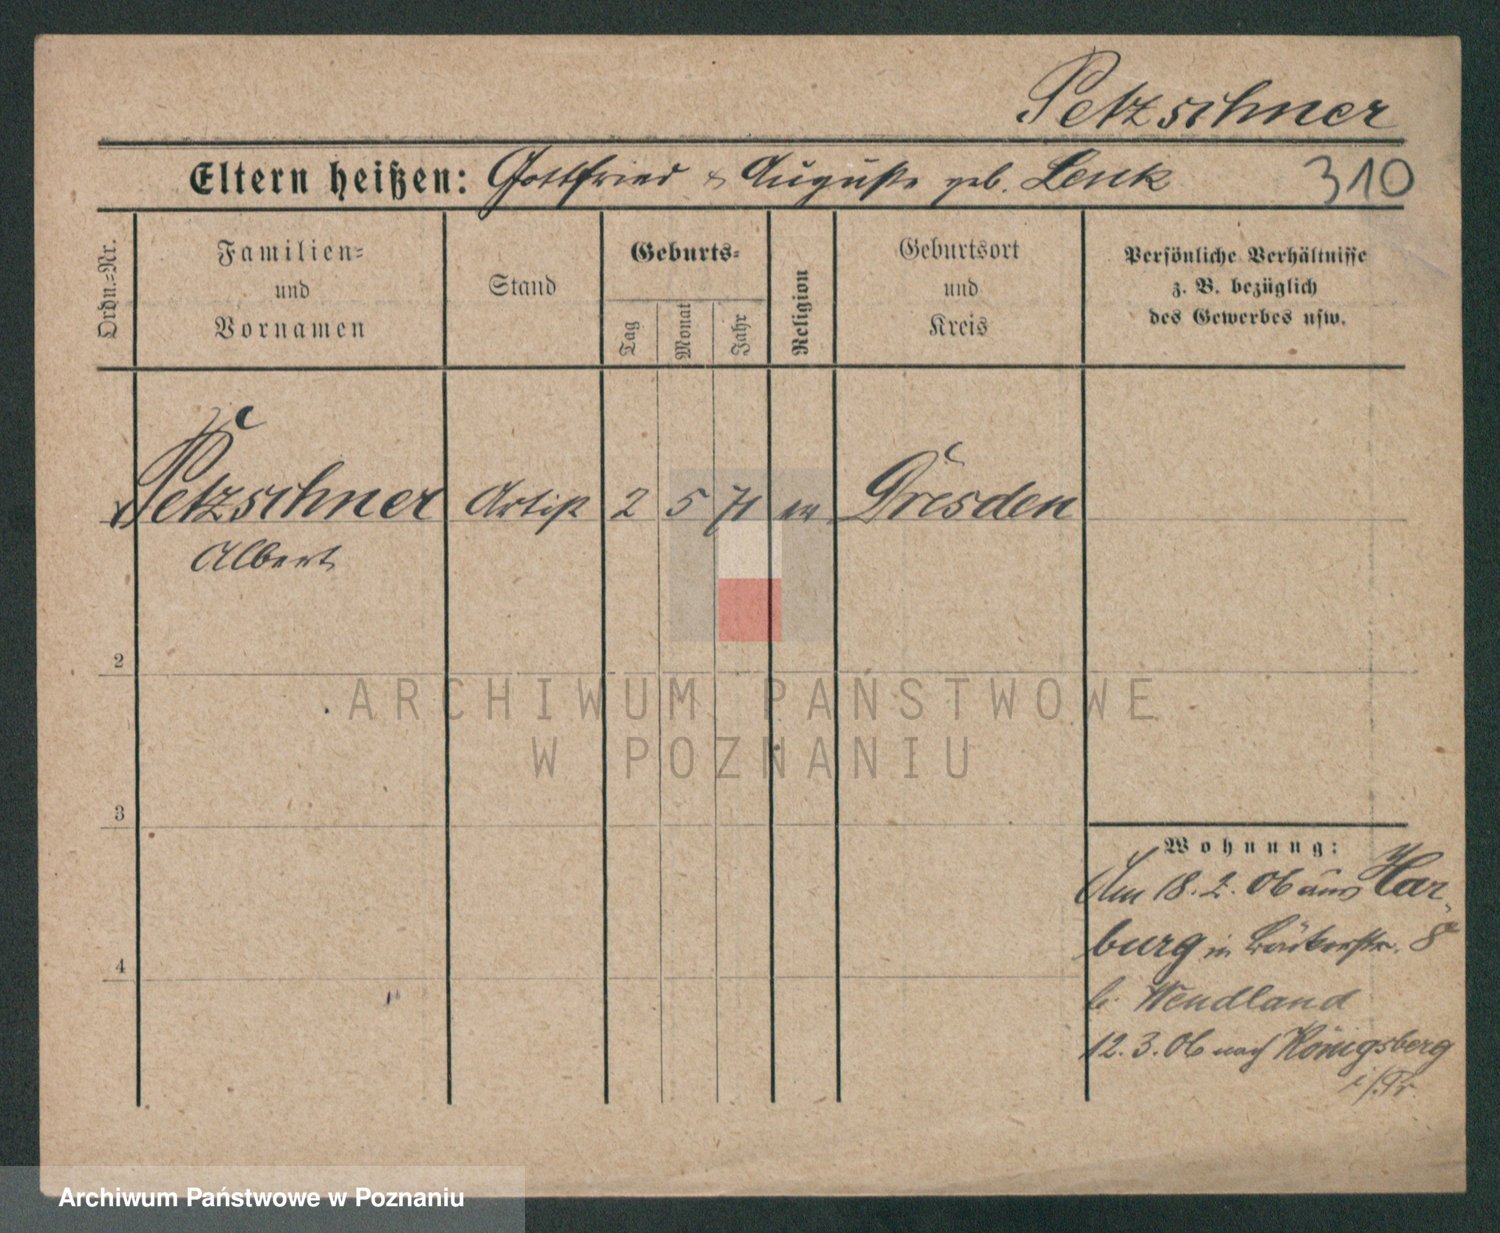 Petzschner
Eltern heißen: Gottfried & Auguste geb. Lenk
310
Ordn.=Nr.
Familien=
und
Vornamen
Stand
Geburts=
Tag
Monat
Jahr
Religion
Geburtsort
und
Kreis
Persönliche Verhältnisse
z. B. bezüglich
des Gewerbes usw.
Petzschner Artist 2 5 71 Dresden
Albert
2
ARCHIWUM PAŃSTWOWE
W POZNANIU
3
Wohnung:
Am 18.2.06 aus Har-
burg in Bäckerstr. 8
b. Wendland
4
12.3.06 nach Königsberg
i/Pr.
Archiwum Państwowe w Poznaniu